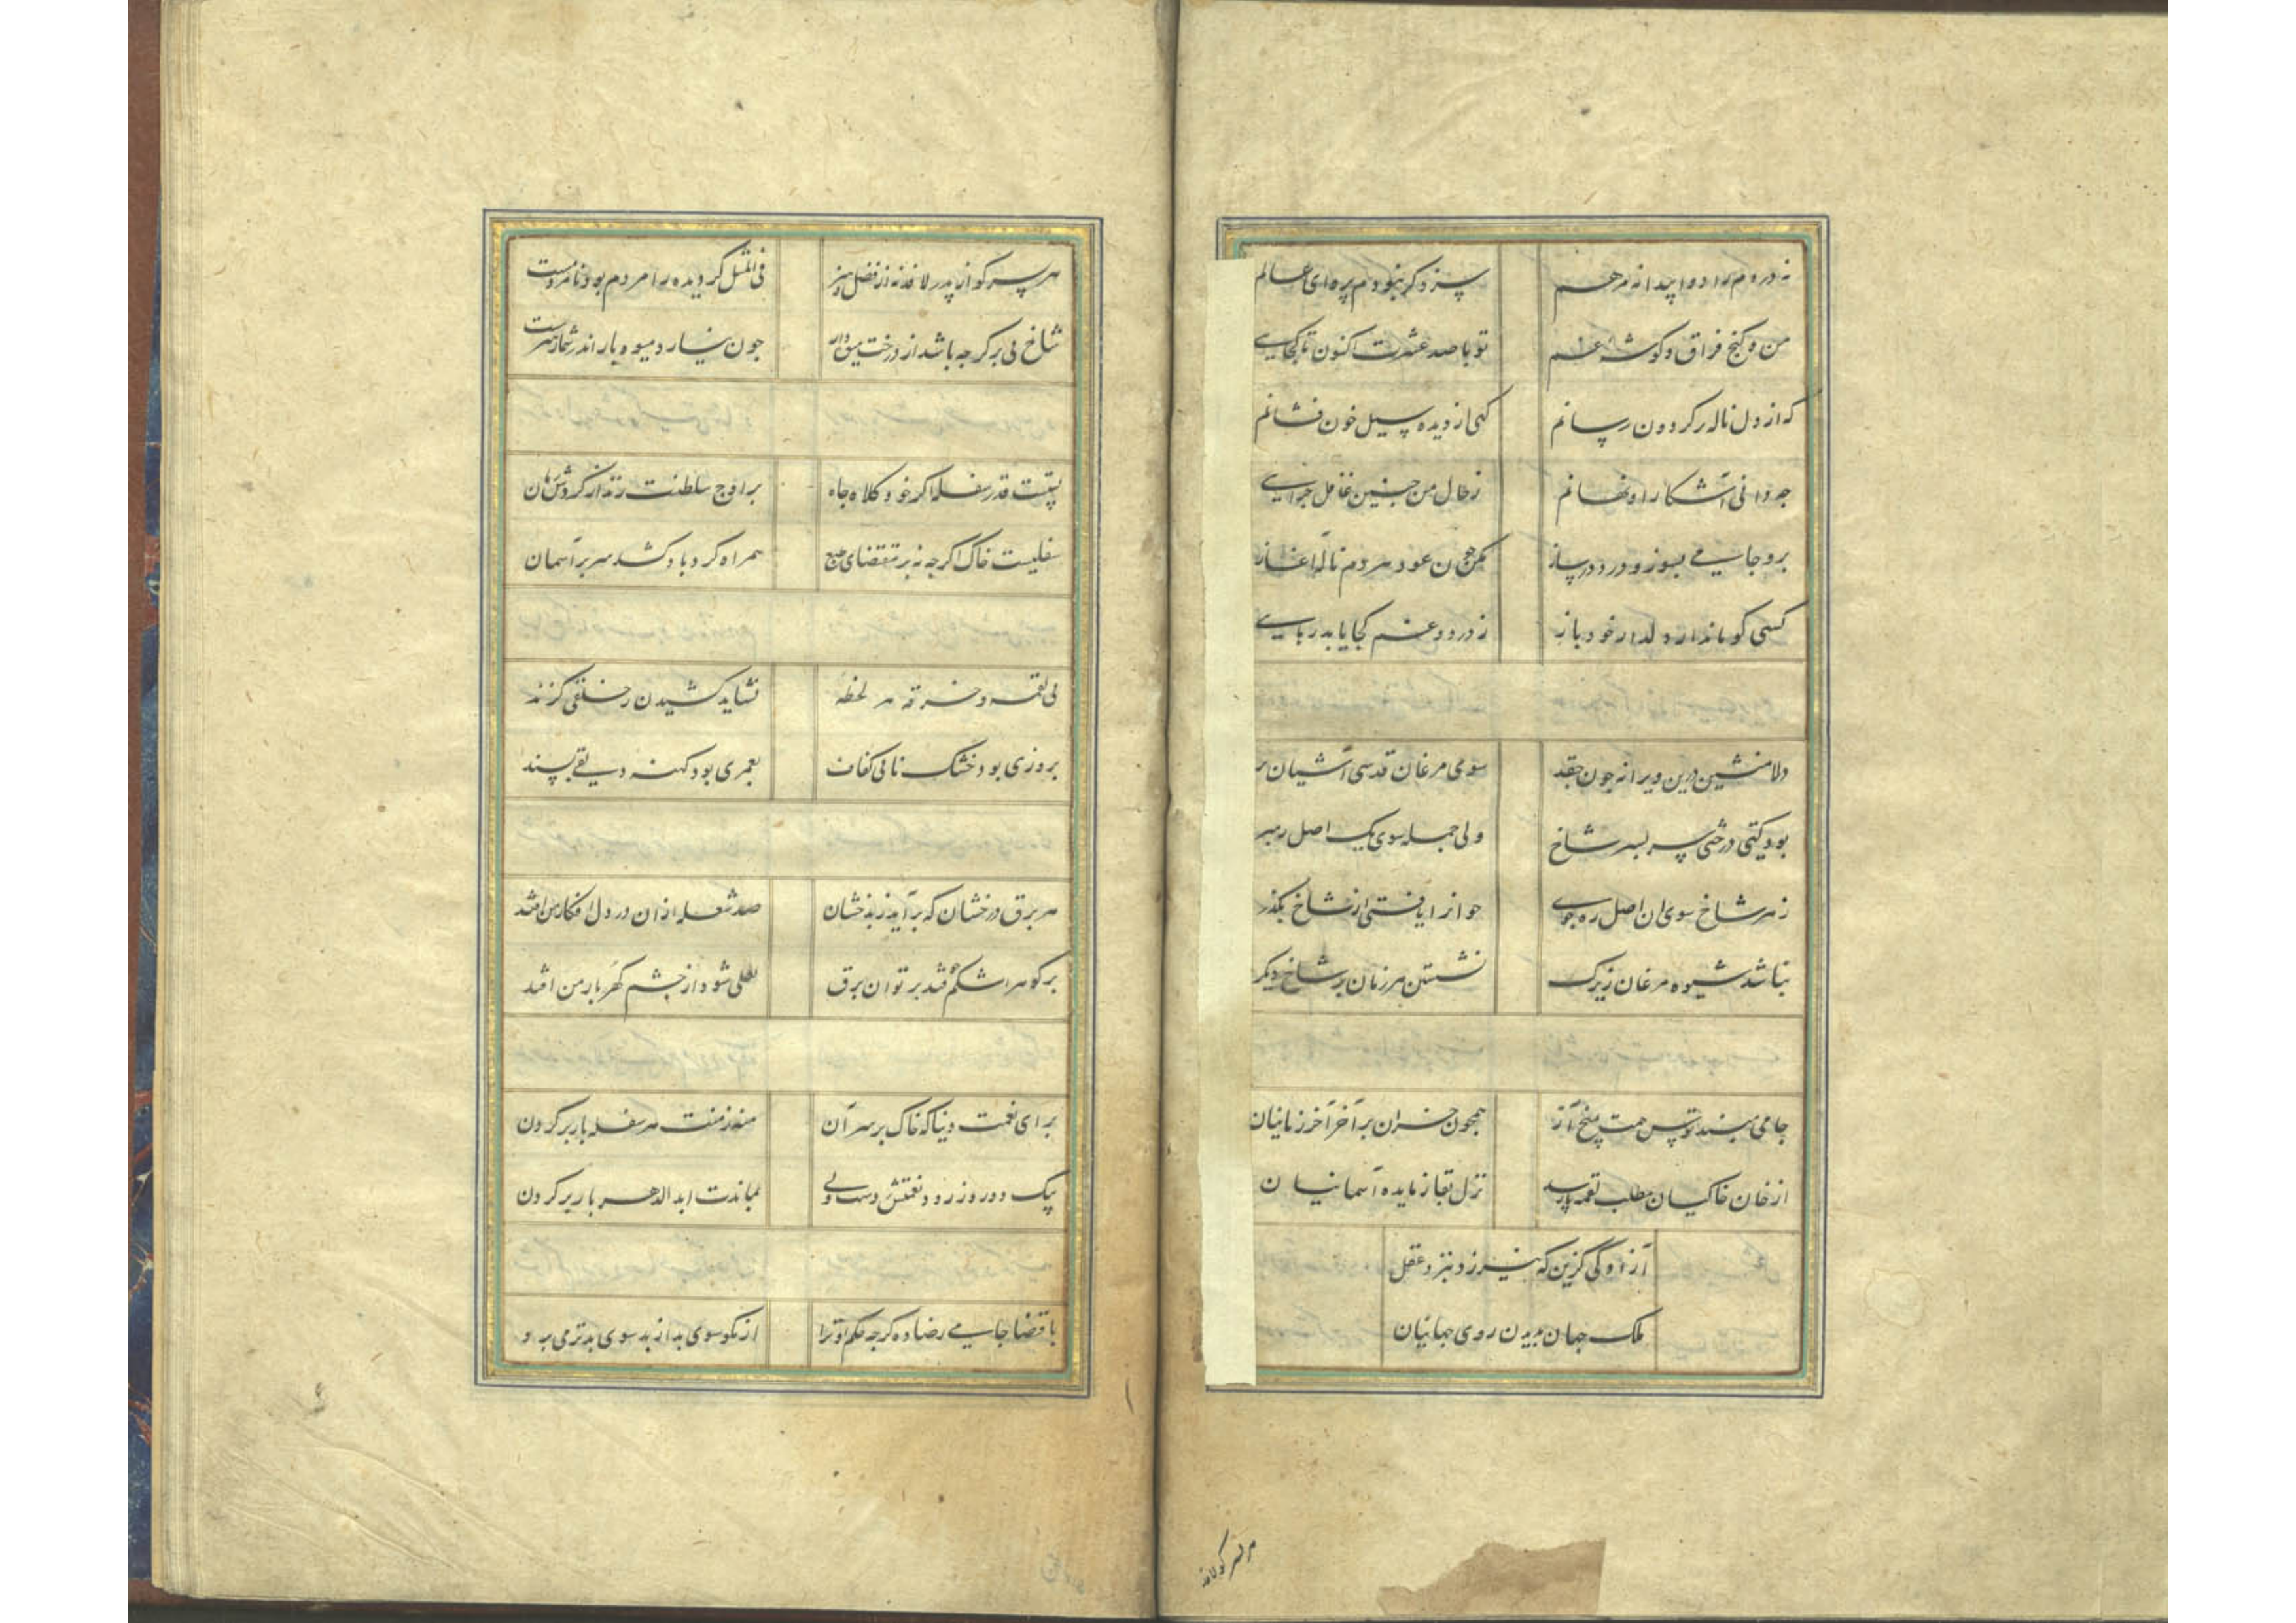 نه دردم را دوا پیدا نه مرهم
سزد گر نبودم پروای عالم
من و کنج فراق و گوشه غم
تو با صد عشرت اکنون تا کجایی
که از دل ناله بر گردون رسانم
گهی از دیده سیل خون فشانم
چه دانی آشکارا و نهانم
ز حال من چنین غافل چرایی
برو جامی بسوز و درد در ساز
مکن چون عود هر دم ناله آغاز
کسی کو ماند از دلدار خود باز
ز درد و غم کجا یابد رهایی
دلا منشین درین ویرانه چون جغد
سوی مرغان قدسی آشیان بر
بود گیتی درختی سر بسر شاخ
ولی جمله سوی یک اصل رهبر
ز هر شاخ سوی آن اصل ره جوی
چو آنرا یافتی از شاخ بگذر
نباشد شیوه مرغان زیرک
نشستن هر زمان بر شاخ دیگر
جامی مبند توسن همت بمیخ آز
همچون خران بر آخر آخر زمانیان
از خان خاکیان مطلب لقمه رسد
نزل بقا ز مایده آسمانیان
آزادگی گزین که نیرزد بنزد عقل
ملک جهان بدیدن روی جهانیان
هر پسر کو
هر پسر کو از پدر لافد نه از فضل و هنر
فی المثل گر دیده را مردم بود نامردمست
شاخ بی بر گرچه باشد از درخت میوه دار
چون نیارد میوه بار اندر شمار
پستست قدر سفله اگر خود کلاه جاه
بر اوج سلطنت زند از گردش زمان
سفلیست خاک اگرچه نه بر مقتضای طبع
همراه گردباد کشد سر بر آسمان
پی لقمه و خرقه هر لحظه
نشاید کشیدن ز خلقی گزند
بروزی بود خشک نانی کفاف
بعمری بود کهنه دلقی پسند
هر برق درخشان که بر آید ز بدخشان
صد شعله از آن در دل افکار من افتد
بر گوهر اشکم فتد پرتو آن برق
لعلی شود از چشم گهربار من افتد
برای نعمت دنیا که خاک بر سر آن
منه ز منت هر سفله بار بر گردن
بیک دو روز رود نعمتش ز دست ولی
بماندت ابد الدهر بار بر گردن
با قضا جامی رضا ده گرچه حکم او ترا
از نکو سوی بد از بد سوی بدتر می برد